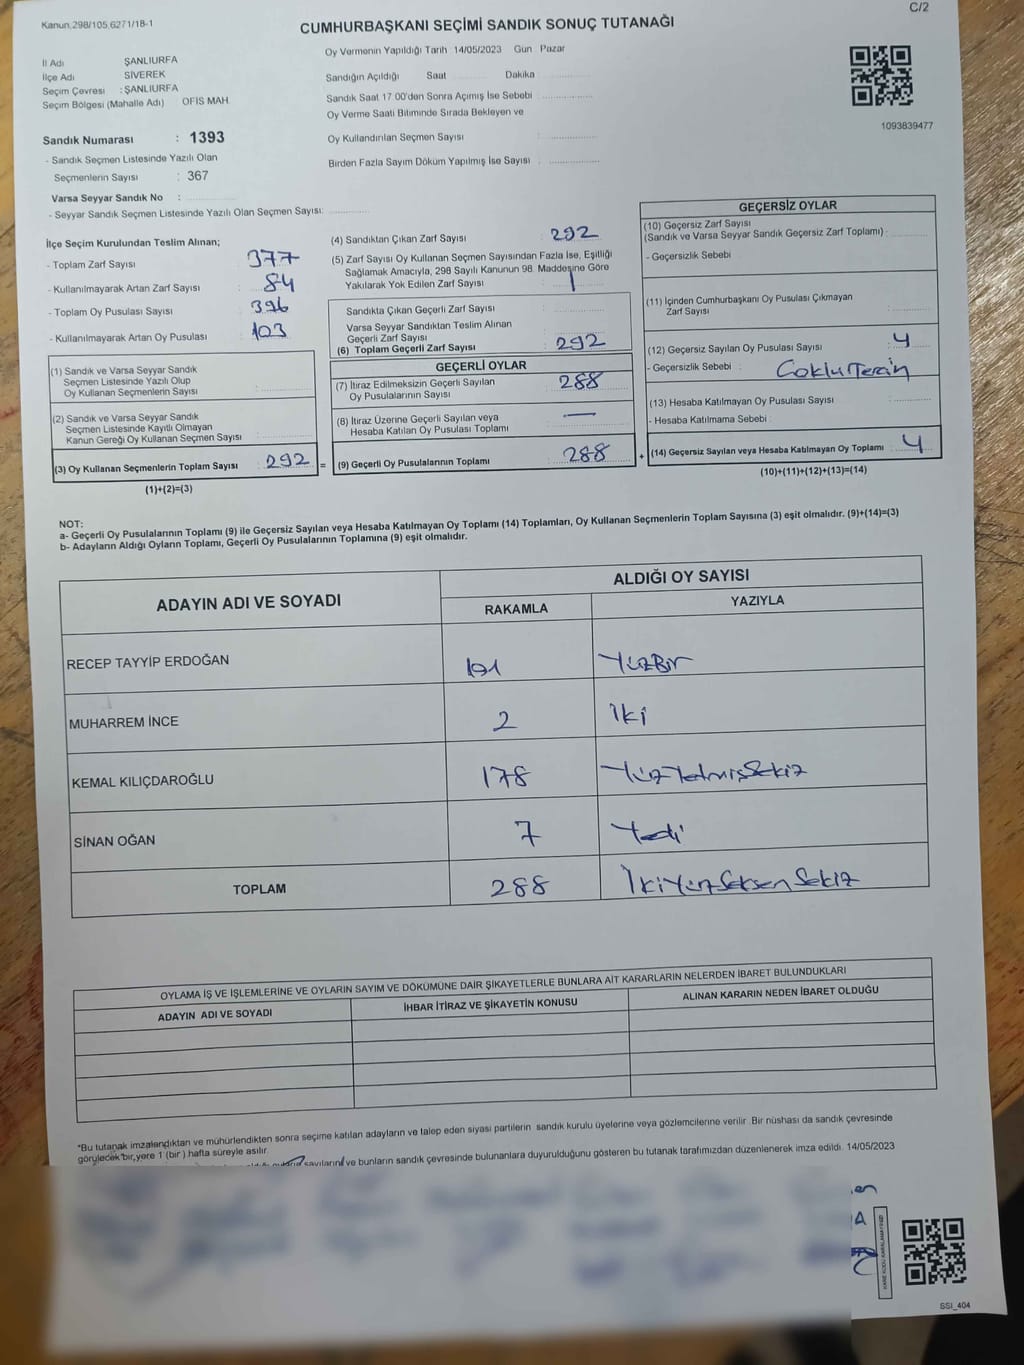 Kanun.298/105,6271/18-1
C/2
CUMHURBAŞKANI SEÇİMİ SANDIK SONUÇ TUTANAĞI
Oy Vermenin Yapıldığı Tarih 14/05/2023 Gün Pazar
İl Adı ŞANLIURFA
İlçe Adı SİVEREK
Seçim Çevresi : ŞANLIURFA
Seçim Bölgesi (Mahalle Adı) OFIS MAH.
Sandığın Açıldığı Saat Dakika
Sandık Saat 17 00'den Sonra Açımış İse Sebebi
Oy Verme Saati Bitiminde Sırada Bekleyen ve
Oy Kullandırılan Seçmen Sayısı :
Birden Fazla Sayım Döküm Yapılmış İse Sayısı
1093839477
Sandık Numarası : 1393
- Sandık Seçmen Listesinde Yazılı Olan
Seçmenlerin Sayısı : 367
Varsa Seyyar Sandık No :
- Seyyar Sandık Seçmen Listesinde Yazılı Olan Seçmen Sayısı:
İlçe Seçim Kurulundan Teslim Alınan;
- Toplam Zarf Sayısı 377
- Kullanılmayarak Artan Zarf Sayısı : 84
- Toplam Oy Pusulası Sayısı : 396
- Kullanılmayarak Artan Oy Pusulası : 103
(1) Sandık ve Varsa Seyyar Sandık
Seçmen Listesinde Yazılı Olup
Oy Kullanan Seçmenlerin Sayısı :
(2) Sandık ve Varsa Seyyar Sandık
Seçmen Listesinde Kayıtlı Olmayan
Kanun Gereği Oy Kullanan Seçmen Sayısı :
(3) Oy Kullanan Seçmenlerin Toplam Sayısı : 292 =
(1)+(2)=(3)
(4) Sandıktan Çıkan Zarf Sayısı : 292
(5) Zarf Sayısı Oy Kullanan Seçmen Sayısından Fazla İse, Eşitliği
Sağlamak Amacıyla, 298 Sayılı Kanunun 98. Maddesine Göre
Yakılarak Yok Edilen Zarf Sayısı : 1
Sandıkta Çıkan Geçerli Zarf Sayısı :
Varsa Seyyar Sandıktan Teslim Alınan
Geçerli Zarf Sayısı
(6) Toplam Geçerli Zarf Sayısı : 292
GEÇERLİ OYLAR
(7) İtiraz Edilmeksizin Geçerli Sayılan
Oy Pusulalarının Sayısı : 288
(8) İtiraz Üzerine Geçerli Sayılan veya
Hesaba Katılan Oy Pusulası Toplamı : —
(9) Geçerli Oy Pusulalarının Toplamı : 288 +
GEÇERSİZ OYLAR
(10) Geçersiz Zarf Sayısı
(Sandık ve Varsa Seyyar Sandık Geçersiz Zarf Toplamı) :
- Geçersizlik Sebebi
(11) İçinden Cumhurbaşkanı Oy Pusulası Çıkmayan
Zarf Sayısı :
(12) Geçersiz Sayılan Oy Pusulası Sayısı : 4
- Geçersizlik Sebebi : Çoklu Tercin
(13) Hesaba Katılmayan Oy Pusulası Sayısı :
- Hesaba Katılmama Sebebi :
(14) Geçersiz Sayılan veya Hesaba Katılmayan Oy Toplamı : 4
(10)+(11)+(12)+(13)=(14)
NOT:
a- Geçerli Oy Pusulalarının Toplamı (9) ile Geçersiz Sayılan veya Hesaba Katılmayan Oy Toplamı (14) Toplamları, Oy Kullanan Seçmenlerin Toplam Sayısına (3) eşit olmalıdır. (9)+(14)=(3)
b- Adayların Aldığı Oyların Toplamı, Geçerli Oy Pusulalarının Toplamına (9) eşit olmalıdır.
ADAYIN ADI VE SOYADI
ALDIĞI OY SAYISI
RAKAMLA YAZIYLA
RECEP TAYYİP ERDOĞAN 101 YüzBir
MUHARREM İNCE 2 İki
KEMAL KILIÇDAROĞLU 178 YüzYetmişSekiz
SİNAN OĞAN 7 Yedi
TOPLAM 288 İkiYüzSeksenSekiz
OYLAMA İŞ VE İŞLEMLERİNE VE OYLARIN SAYIM VE DÖKÜMÜNE DAİR ŞİKAYETLERLE BUNLARA AİT KARARLARIN NELERDEN İBARET BULUNDUKLARI
ADAYIN ADI VE SOYADI İHBAR İTİRAZ VE ŞİKAYETİN KONUSU ALINAN KARARIN NEDEN İBARET OLDUĞU
*Bu tutanak imzalandıktan ve mühürlendikten sonra seçime katılan adayların ve talep eden siyasi partilerin sandık kurulu üyelerine veya gözlemcilerine verilir. Bir nüshası da sandık çevresinde
görülecek bir yere 1 (bir) hafta süreyle asılır.
sayılarını ve bunların sandık çevresinde bulunanlara duyurulduğunu gösteren bu tutanak tarafımızdan düzenlenerek imza edildi. 14/05/2023
SSI_404